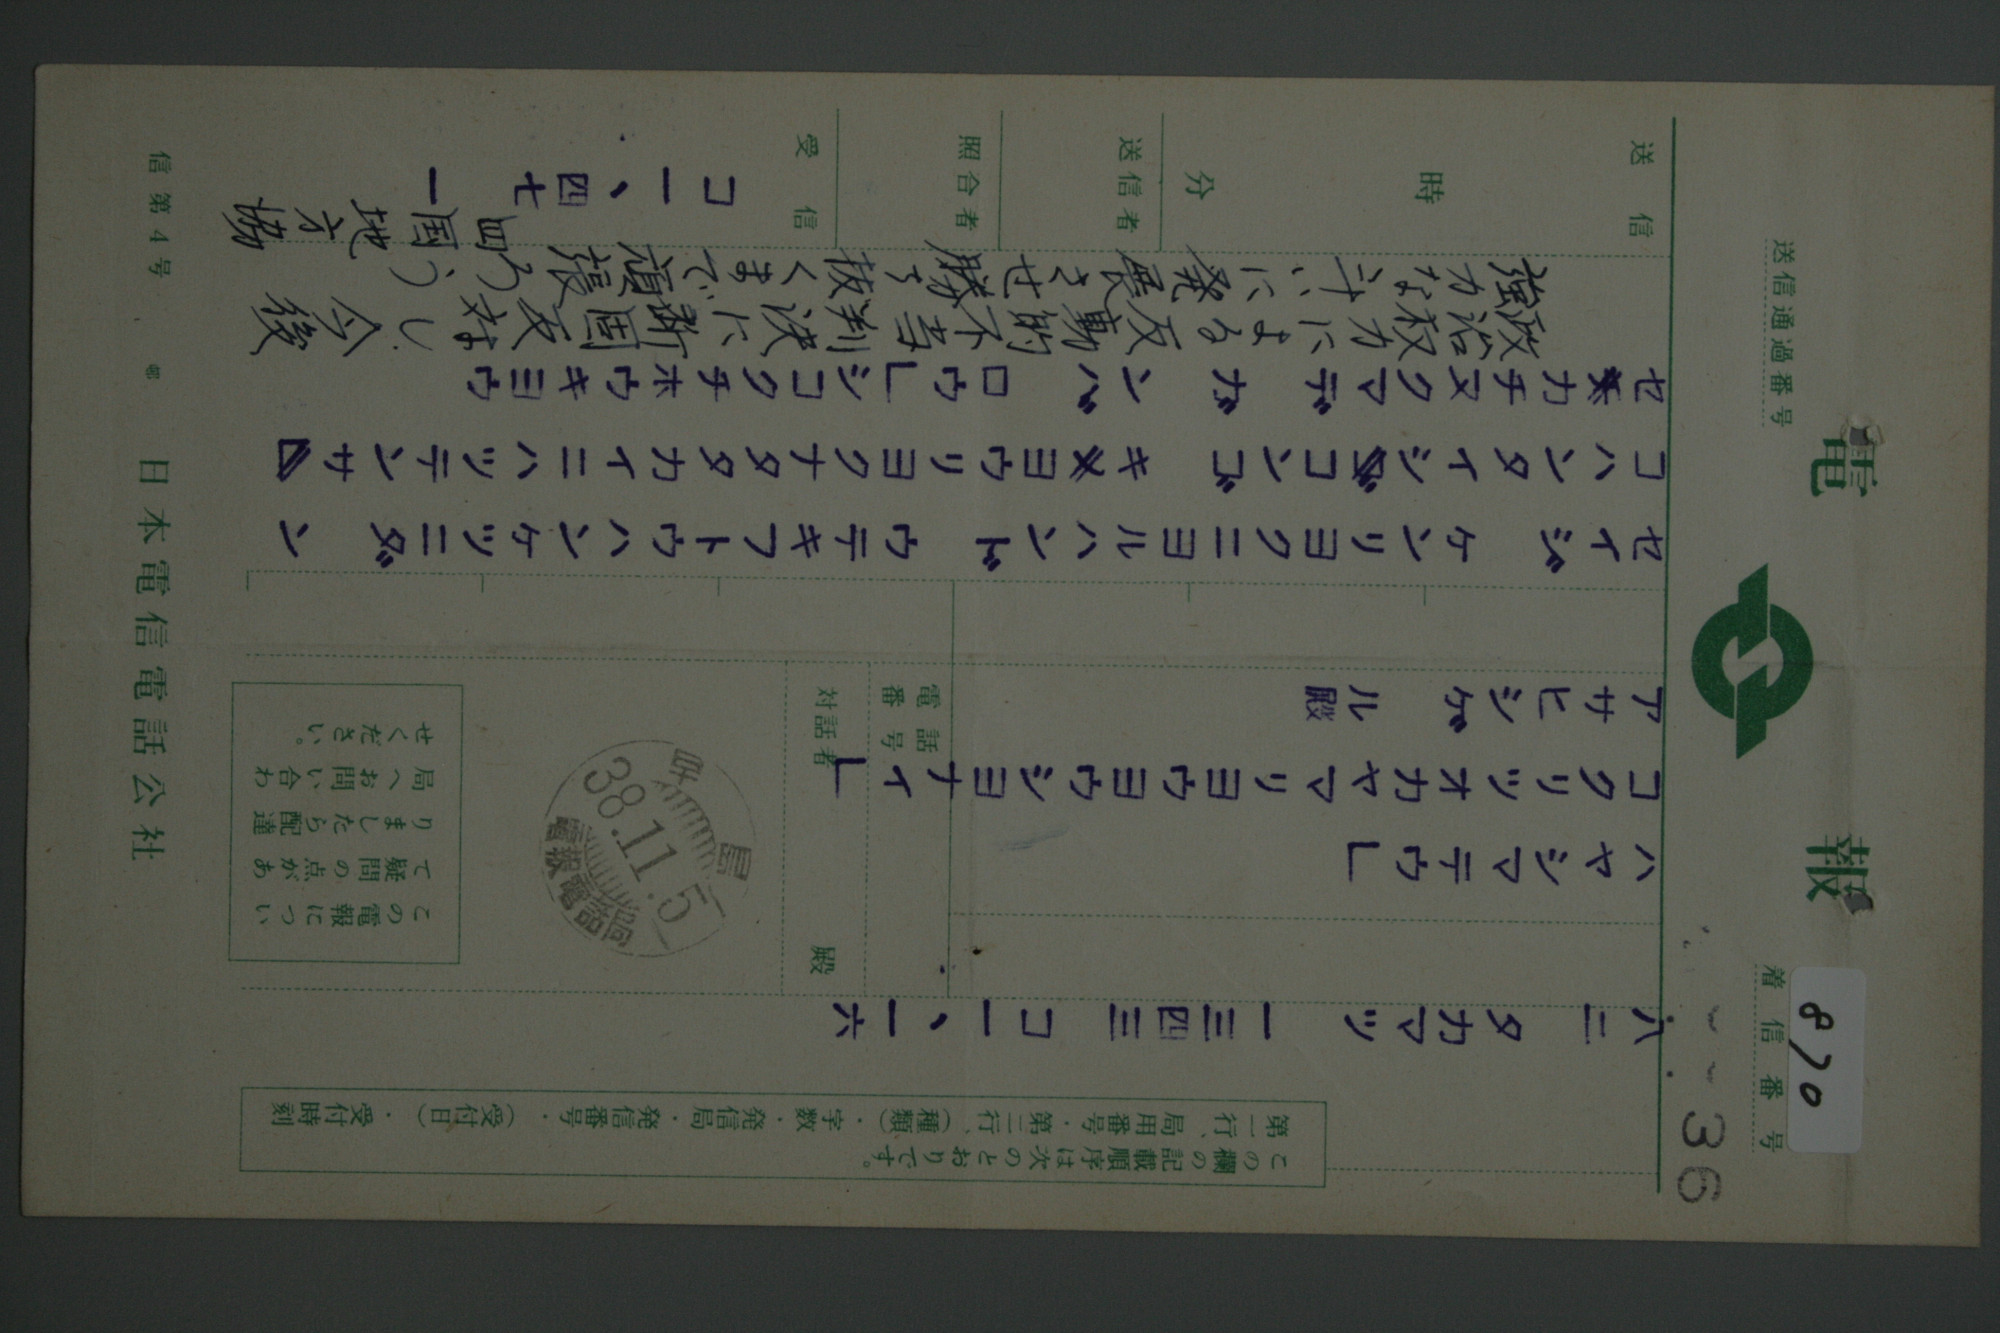 電報
着信番号
870
36
送信通過番号
この欄の記載順序は次のとおりです。
第一行、局用番号・第二行、(種類)・字数・発信局・発信番号・(受付日)・受付時刻
八ニ タカマツ 一三四三 コ一、一六
ハヤシマテウ」
コクリツオカヤマリヨウヨウシヨナイ」
アサヒシゲル殿
電話番号
対話者 殿
早島
38.11.5
電報電話局
この電報につい
て疑問の点があ
りましたら配達
局へお問い合わ
せください。
セイジケンリヨクニヨルハンドウテキフトウハンケツニダン
コハンタイシコンゴキヨウリヨクナタタカイニハツテンサ
セカチヌクマデガンバロウ」シコクチホウキヨウ
政治权力による反動的不当判決に断固反対し今後
強力な斗いに発展させ勝ち抜くまで頑張ろう
四国地方協
送信
時 分
送信者
照合者
受信
コ一、四七 一
信第4号
日本電信電話公社